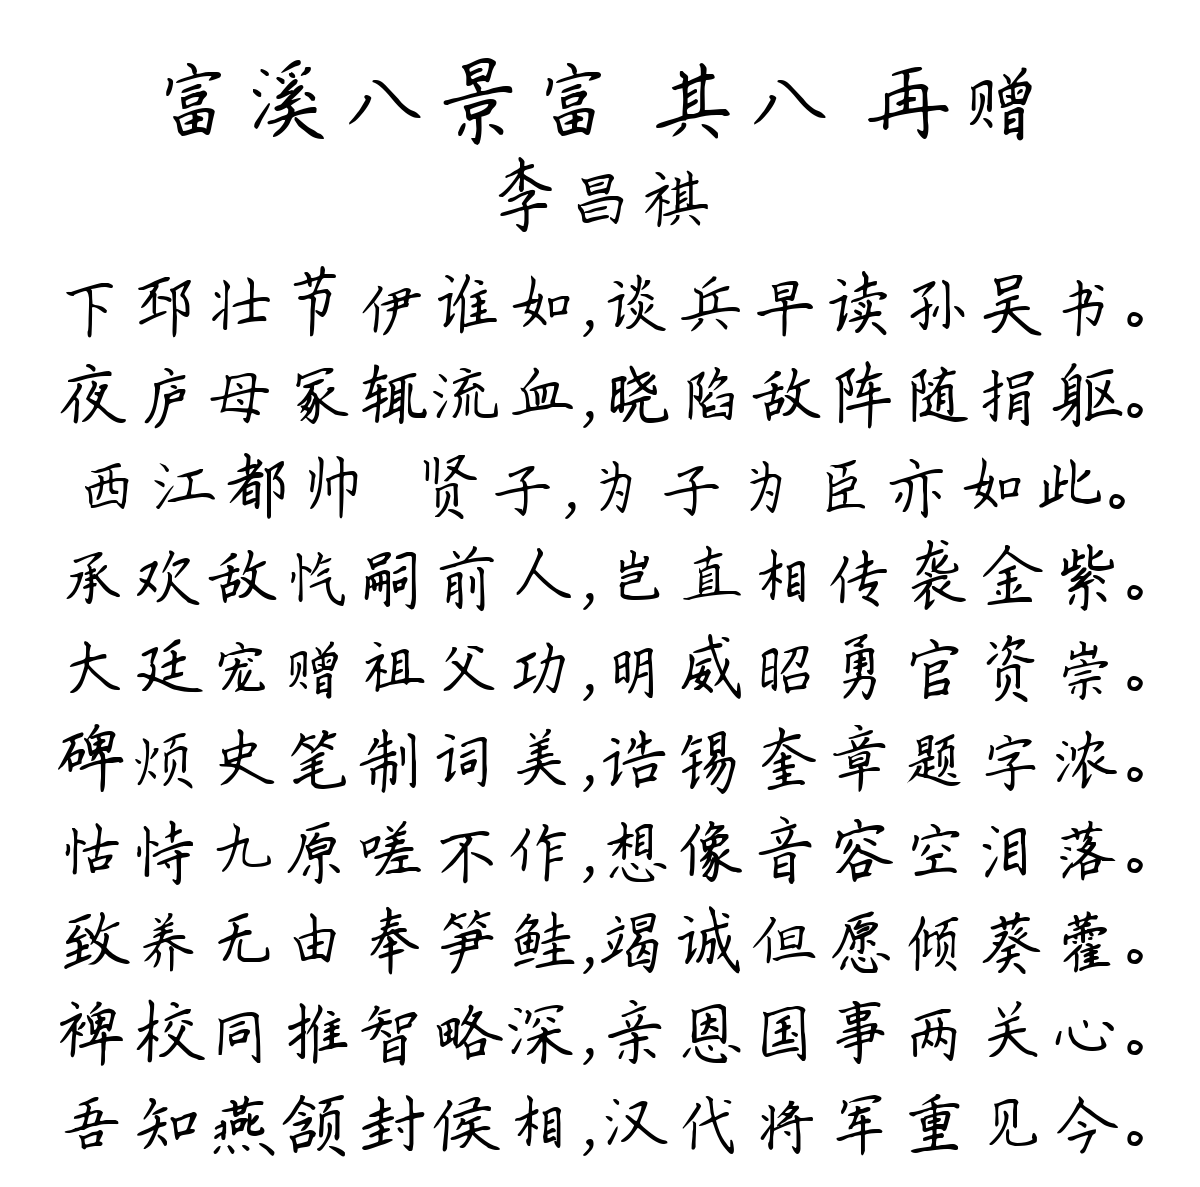 富溪八景富 其八 再赠
李昌祺
下邳壮节伊谁如,谈兵早读孙吴书。
夜庐母冢辄流血,晓陷敌阵随捐躯。
西江都帅 贤子,为子为臣亦如此。
承欢敌忾嗣前人,岂直相传袭金紫。
大廷宠赠祖父功,明威昭勇官资崇。
碑烦史笔制词美,诰锡奎章题字浓。
怙恃九原嗟不作,想像音容空泪落。
致养无由奉笋鲑,竭诚但愿倾葵藿。
裨校同推智略深,亲恩国事两关心。
吾知燕颔封侯相,汉代将军重见今。